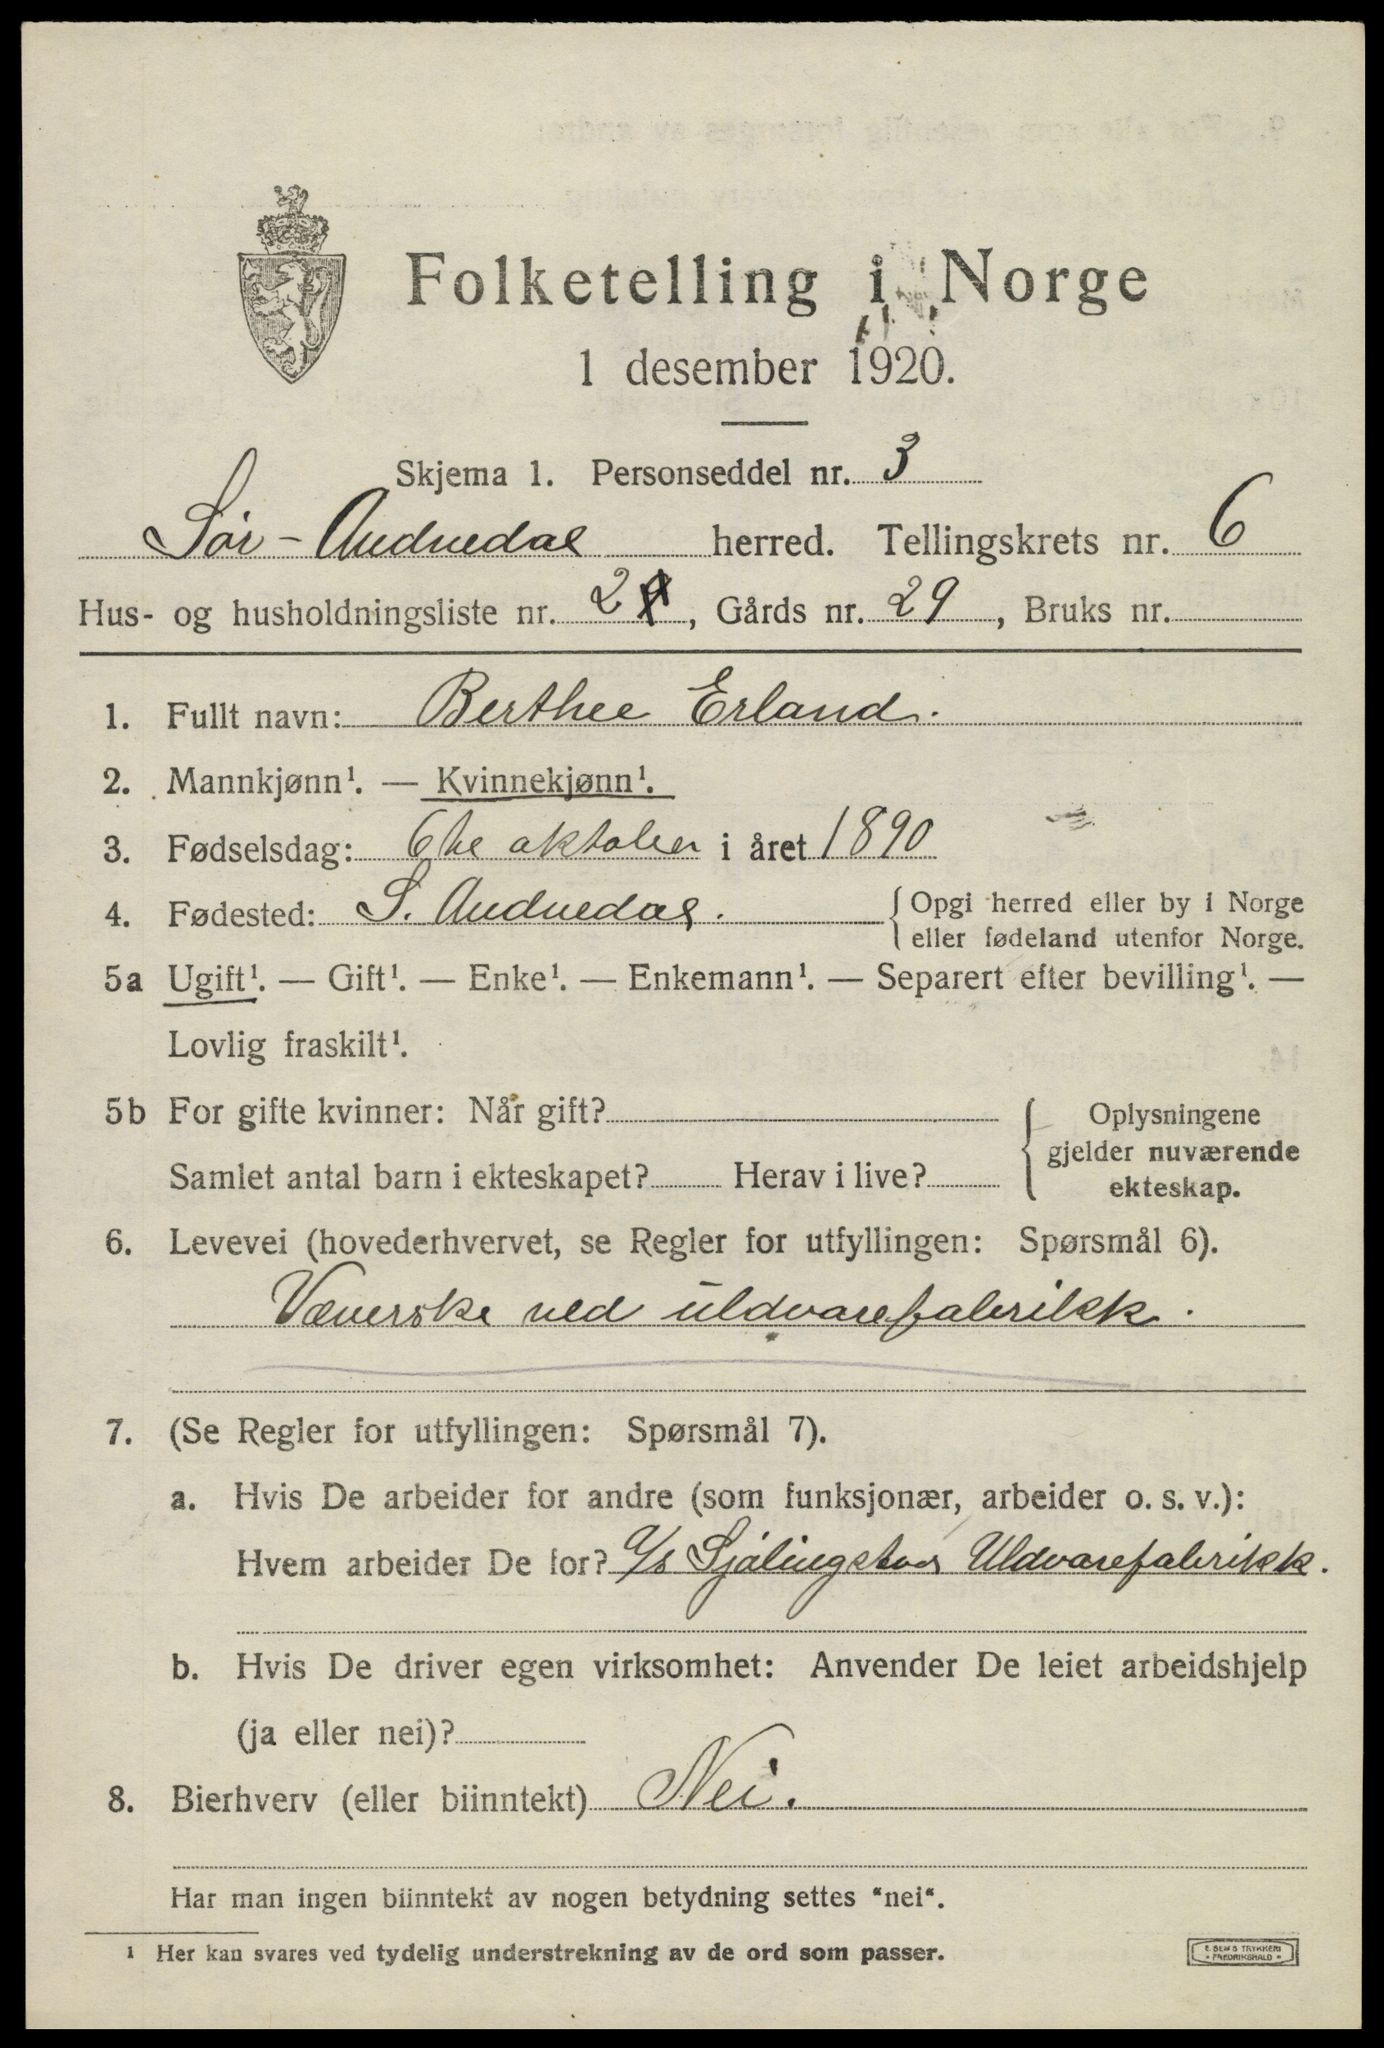 Folketelling i Norge
1 desember 1920.
Skjema 1. Personseddel nr. 3
Sør-Audnedal herred. Tellingskrets nr. 6
Hus- og husholdningsliste nr. 2, Gårds nr. 29, Bruks nr.
1. Fullt navn: Berthee Erland.
2. Mannkjønn¹. — Kvinnekjønn¹.
3. Fødselsdag: 6te oktober i året 1890
4. Fødested: S. Audnedal. { Opgi herred eller by i Norge
eller fødeland utenfor Norge.
5a Ugift¹. — Gift¹. — Enke¹. — Enkemann¹. — Separert efter bevilling¹. —
Lovlig fraskilt¹.
5b For gifte kvinner: Når gift? { Oplysningene
gjelder nuværende
Samlet antal barn i ekteskapet? Herav i live? ekteskap.
6. Levevei (hovederhvervet, se Regler for utfyllingen: Spørsmål 6).
Væverske ved uldvarefabrikk.
7. (Se Regler for utfyllingen: Spørsmål 7).
a. Hvis De arbeider for andre (som funksjonær, arbeider o. s. v.):
Hvem arbeider De for? A/s Sjølingstad Uldvarefabrikk.
b. Hvis De driver egen virksomhet: Anvender De leiet arbeidshjelp
(ja eller nei)?
8. Bierhverv (eller biinntekt) Nei.
Har man ingen biinntekt av nogen betydning settes "nei".
¹ Her kan svares ved tydelig understrekning av de ord som passer.
E. SEM'S TRYKKERI
FREDRIKSHALD